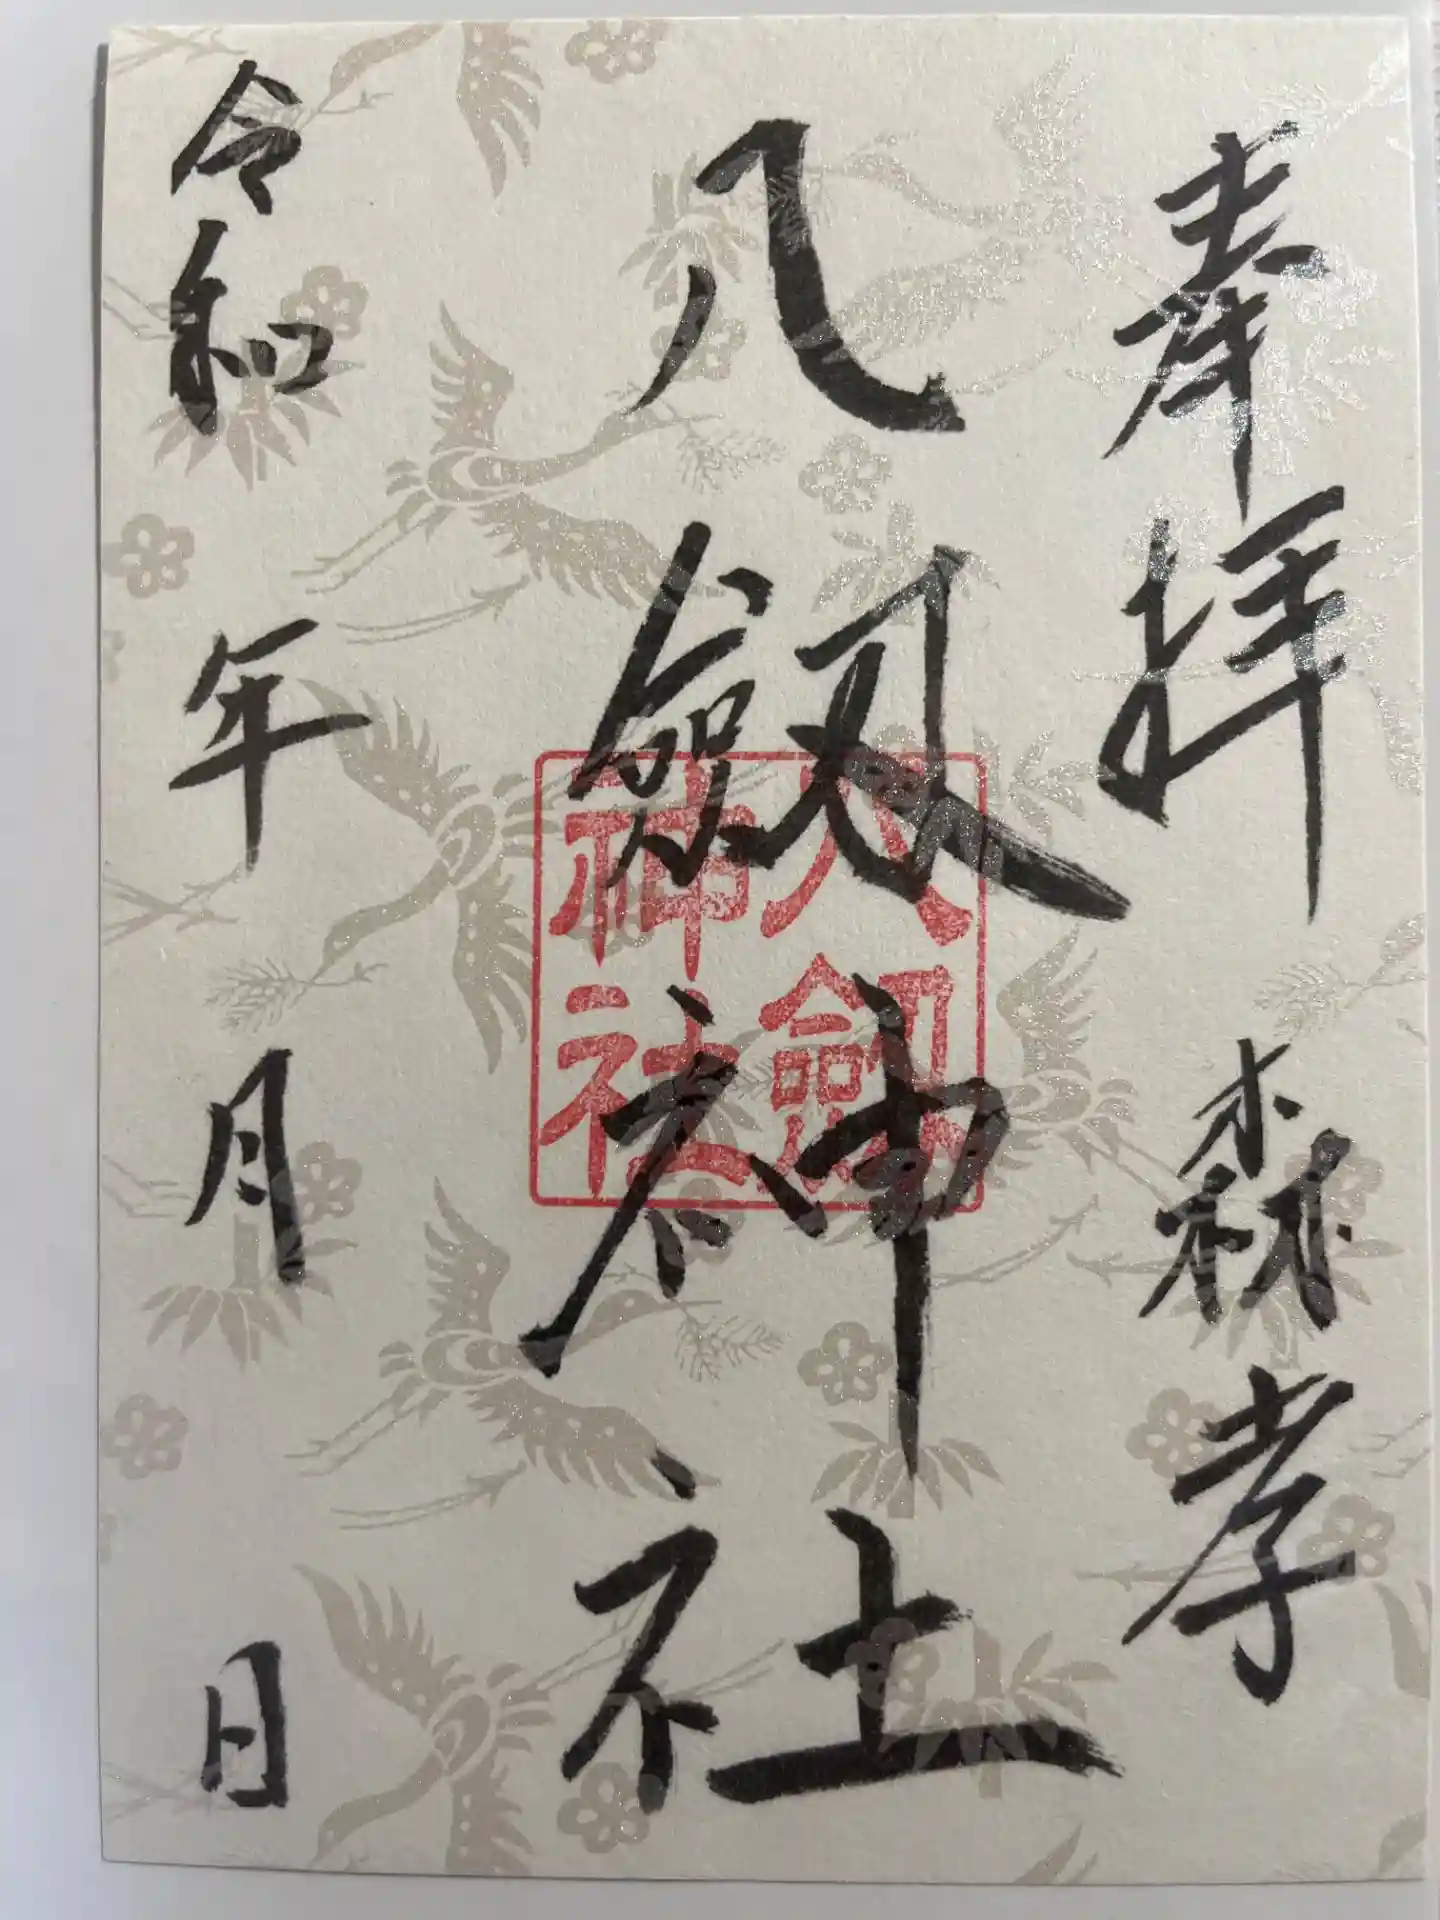 奉拝 森孝
八劔神社
八劔神社
令和 年 月 日